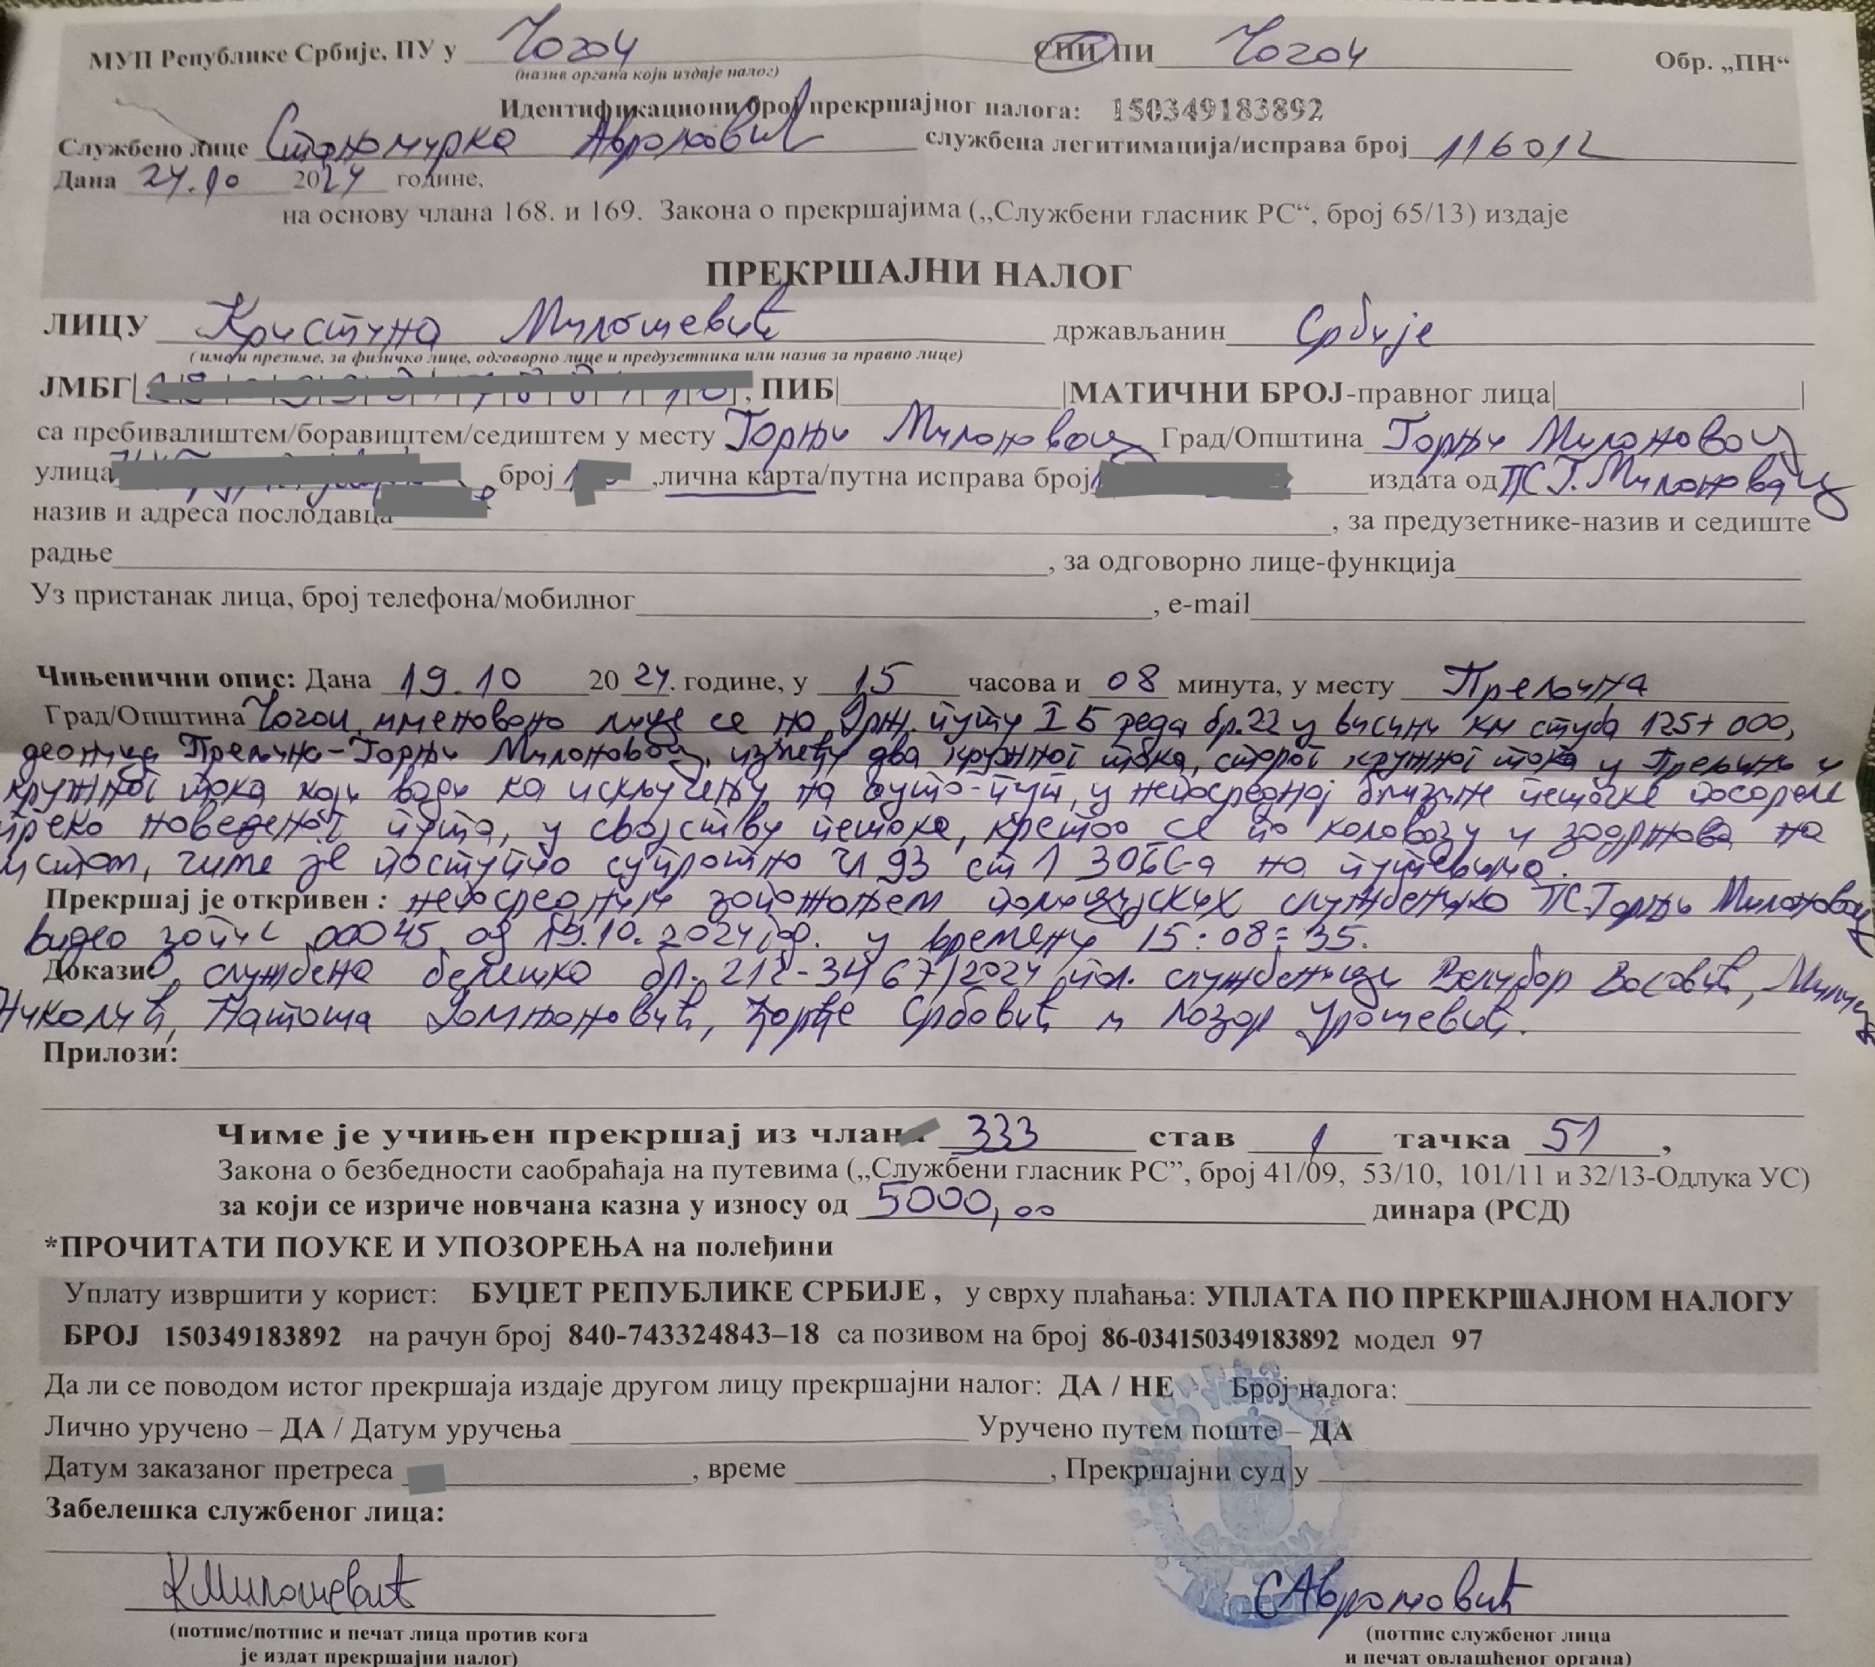 МУП Републике Србије, ПУ у Чачак СПИ/ПИ Чачак Обр. „ПН“
(назив органа који издаје налог)
Идентификациони број прекршајног налога: 150349183892
Службено лице Станимирка Аврамовић службена легитимација/исправа број 116012
Дана 24.10 2024 године,
на основу члана 168. и 169. Закона о прекршајима („Службени гласник РС“, број 65/13) издаје
ПРЕКРШАЈНИ НАЛОГ
ЛИЦУ Кристина Милошевић држављанин Србије
(име и презиме, за физичко лице, одговорно лице и предузетника или назив за правно лице)
ЈМБГ , ПИБ МАТИЧНИ БРОЈ-правног лица
са пребивалиштем/боравиштем/седиштем у месту Горњи Милановац Град/Општина Горњи Милановац
улица број ,лична карта/путна исправа број издата од ПС Г. Милановац
назив и адреса послодавца , за предузетнике-назив и седиште
радње , за одговорно лице-функција
Уз пристанак лица, број телефона/мобилног , e-mail
Чињенични опис: Дана 19.10 2024. године, у 15 часова и 08 минута, у месту Прељина
Град/Општина Чачак именовано лице се на држ. путу I Б реда бр.22 у висини км стуба 125+000,
деоница Прељина-Горњи Милановац, између два кружног тока, старог кружног тока у Прељини и
кружног тока који води ка искључењу на ауто-пут, у непосредној близини пешачке
преко наведеног пута, у својству пешака, кретао се по коловозу и задржавао на
истом, чиме је поступио супротно чл 93 ст 1 ЗОБС-а на путевима.
Прекршај је откривен : непосредним запажањем полицијских службеника ПС Горњи Милановац
видео запис 00045 од 19.10.2024 год. у времену 15:08:35.
Докази: службена белешка бр. 212-3467/2024, пол. службеници Велибор Васовић, Милица
Николић, Наташа Дамњановић, Ђорђе Србовић и Лазар Урошевић.
Прилози:
Чиме је учињен прекршај из члана 333 став 1 тачка 51 ,
Закона о безбедности саобраћаја на путевима („Службени гласник РС”, број 41/09, 53/10, 101/11 и 32/13-Одлука УС)
за који се изриче новчана казна у износу од 5000,00 динара (РСД)
*ПРОЧИТАТИ ПОУКЕ И УПОЗОРЕЊА на полеђини
Уплату извршити у корист: БУЏЕТ РЕПУБЛИКЕ СРБИЈЕ , у сврху плаћања: УПЛАТА ПО ПРЕКРШАЈНОМ НАЛОГУ
БРОЈ 150349183892 на рачун број 840-743324843–18 са позивом на број 86-034150349183892 модел 97
Да ли се поводом истог прекршаја издаје другом лицу прекршајни налог: ДА / НЕ Број налога:
Лично уручено – ДА / Датум уручења Уручено путем поште – ДА
Датум заказаног претреса , време , Прекршајни суд у
Забелешка службеног лица:
К Милошевић САврамовић
(потпис/потпис и печат лица против кога (потпис службеног лица
је издат прекршајни налог) и печат овлашћеног органа)